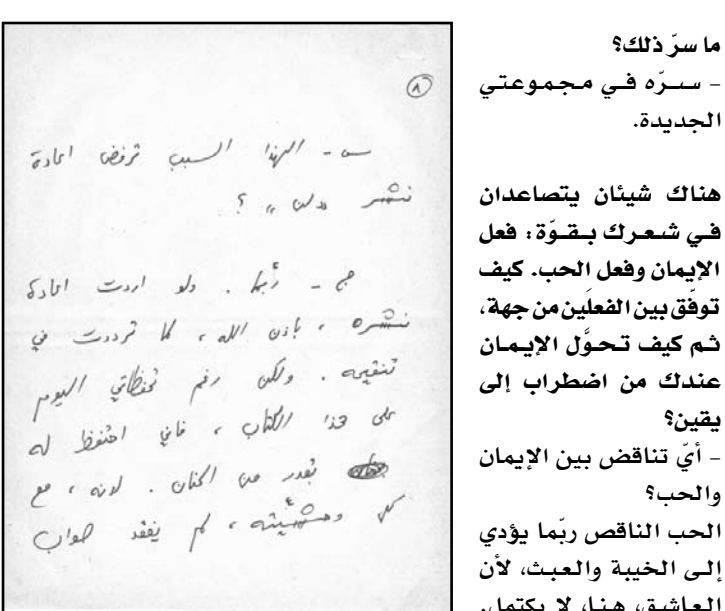 ما سرّ ذلك؟
- سرّه في مجموعتي
الجديدة.
هناك شيئان يتصاعدان
في شعرك بقوّة: فعل
الإيمان وفعل الحب. كيف
توفّق بين الفعلَين من جهة،
ثم كيف تحوَّل الإيمان
عندك من اضطراب إلى
يقين؟
- أيّ تناقض بين الإيمان
والحب؟
الحب الناقص ربّما يؤدي
إلى الخيبة والعبث، لأن
العاشق، هنا، لا يكتمل.
٨
س - ألهذا السبب ترفض اعادة
نشر «لن» ؟
ج - ربما . ولو اردت اعادة
نشره ، باذن الله ، لما ترددت في
تنقيحه . ولكن رغم تحفظاتي اليوم
على هذا الكتاب ، فاني احتفظ له
بقدر من الحنان . لانه ، مع
كل وحشيته ، لم يفقد صواب